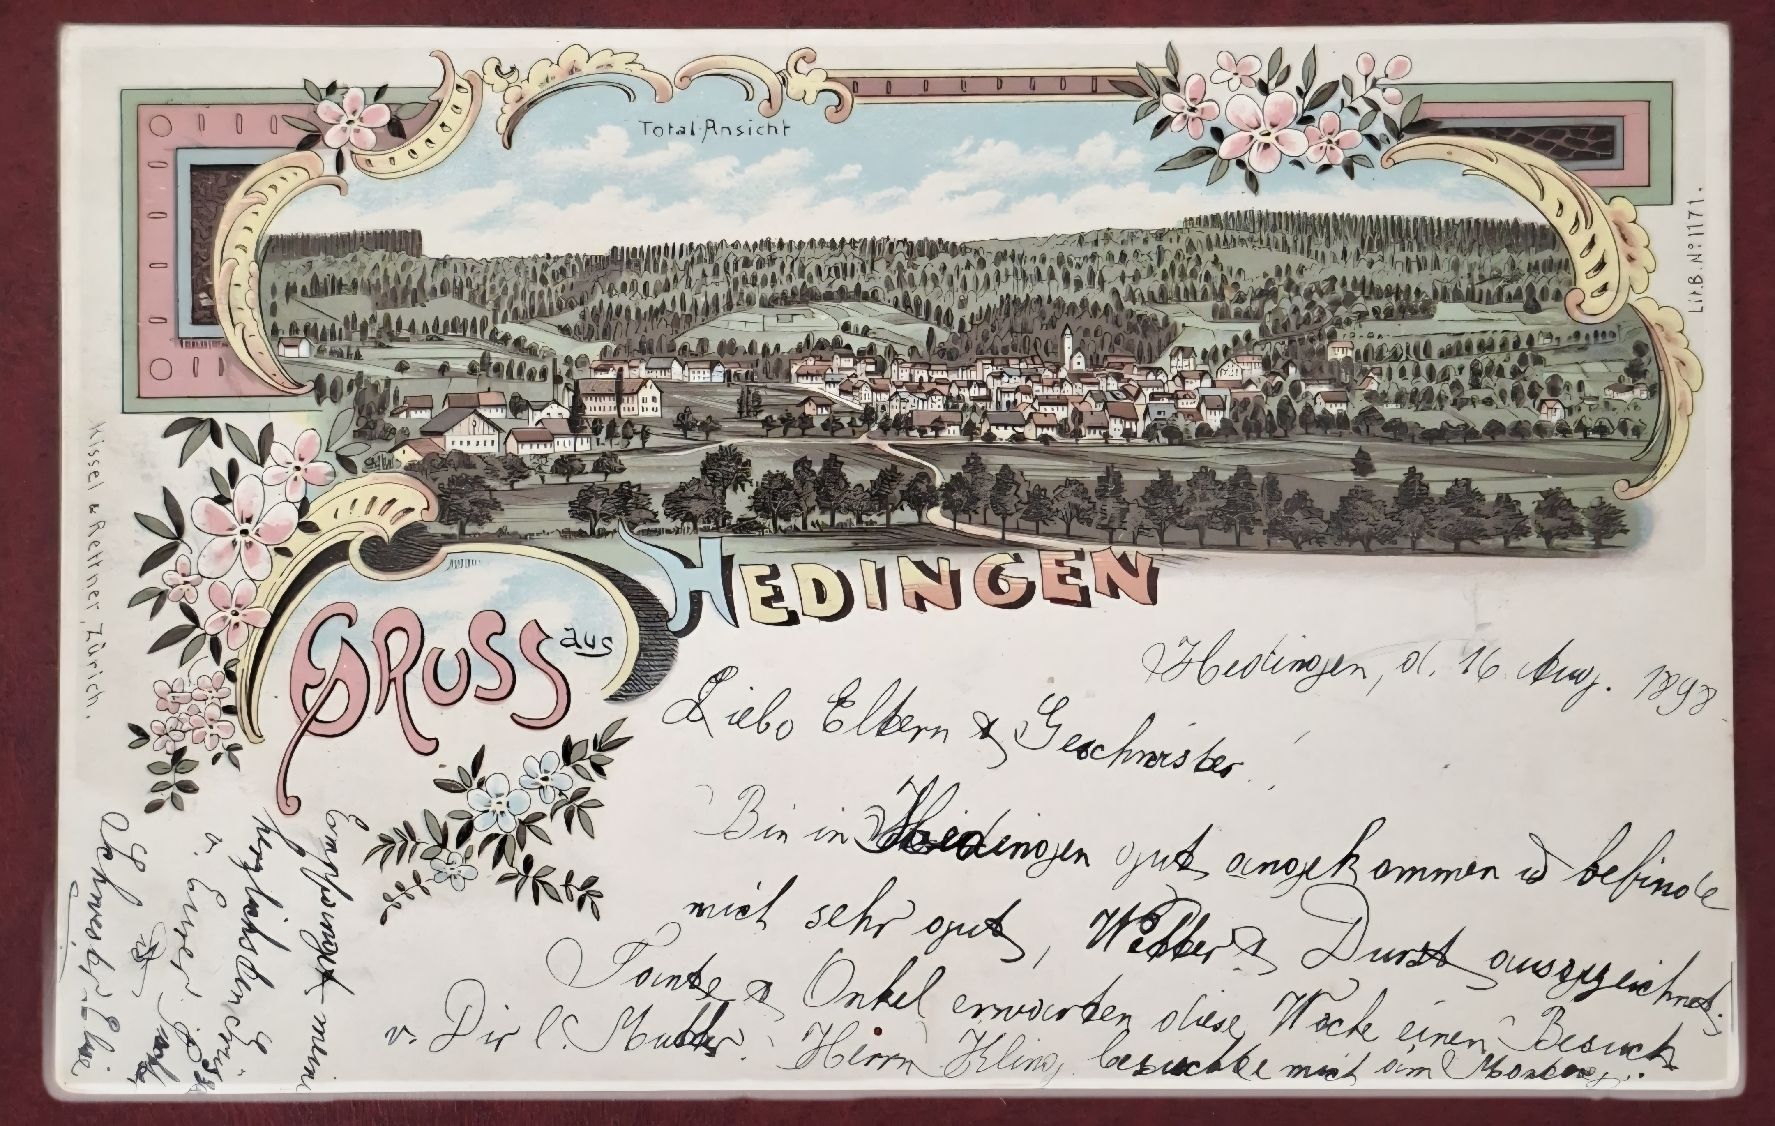 Total-Ansicht
Lit. B. No 1171.
Kissel & Rettner, Zürich.
GRUSS aus
HEDINGEN
Hedingen, d. 16. Aug. 1898.
Liebe Eltern & Geschwister!
Bin in Hedingen gut angekommen u befinde
mich sehr gut, Wetter & Durst ausgezeichnet.
Tante & Onkel erwarten diese Woche einen Besuch
v. Dir l. Mutter. Herrn Kling besuchte mich am
Empfanget meine
herzlichsten Grüsse
v. Eurer
Schwester